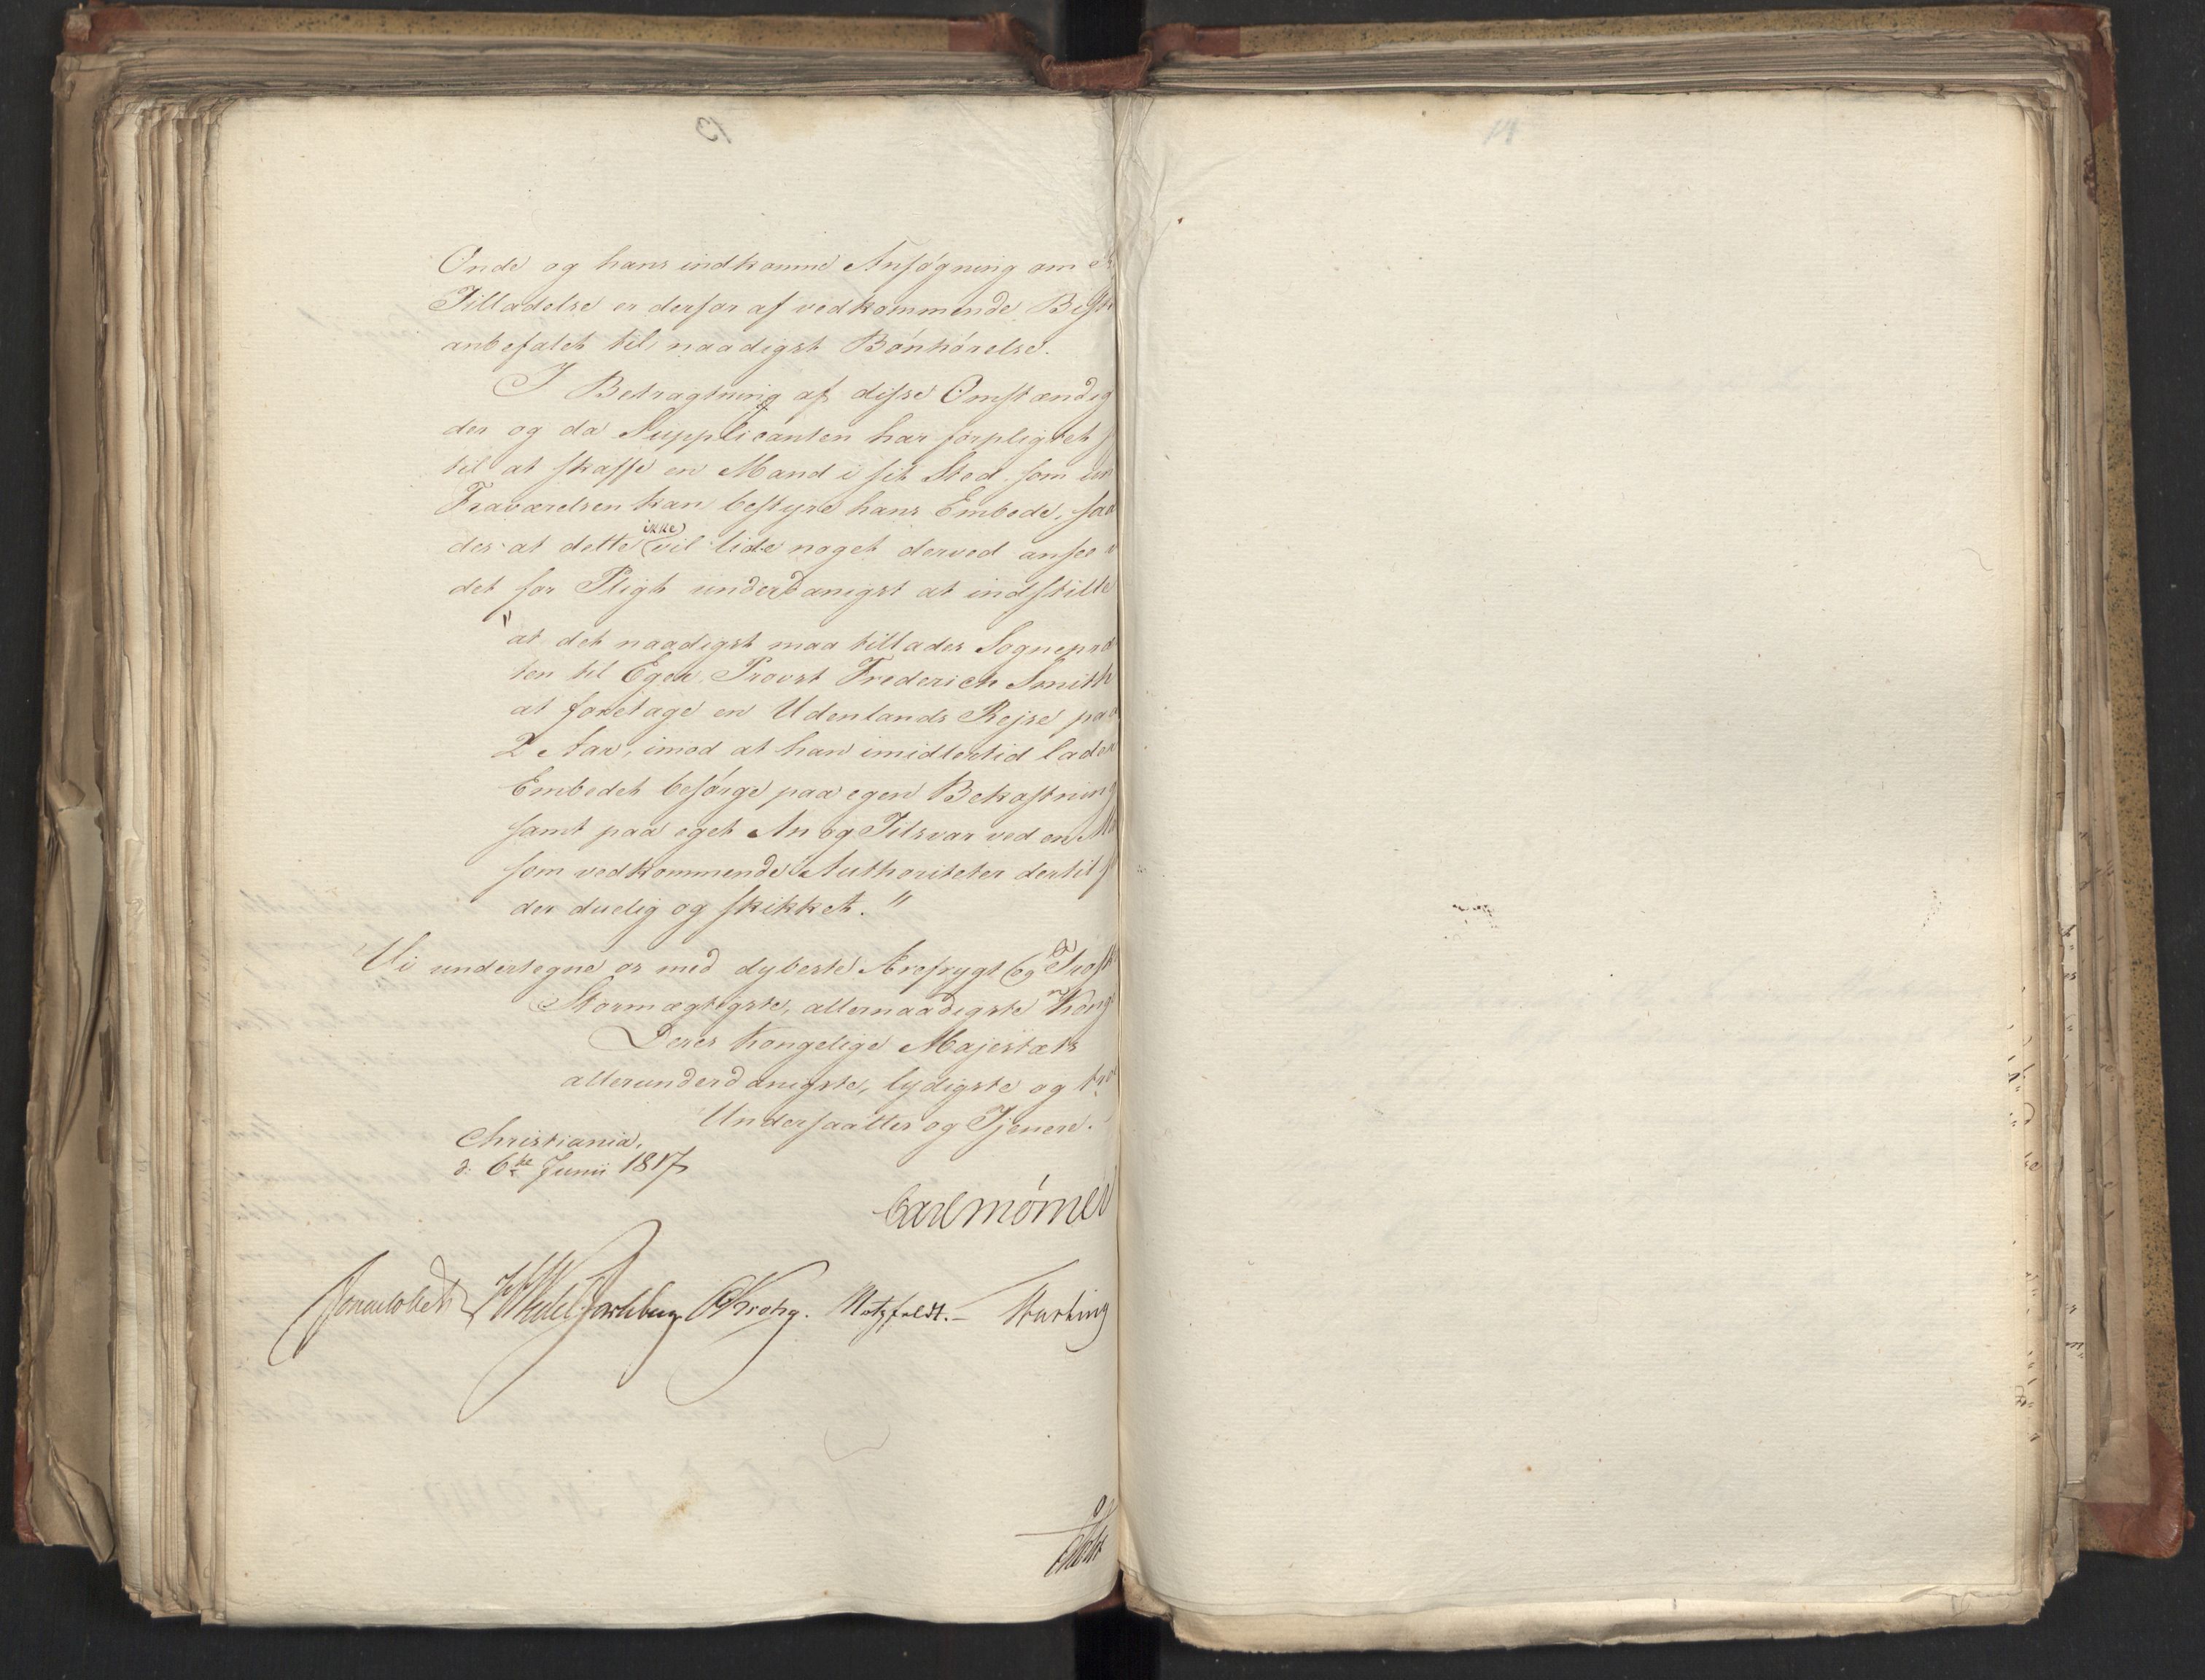 Onde og hans indkomne Ansøgning om
Tilladelse er derfor af vedkommende
anbefalet til naadigst Bönhörelse.
I Betragtning af disse Omstændig
der og da Supplicanten har forpligtet
til at skaffe en Mand i sit Sted som
Fraværelsen kan bestyre hans Embede, saa
des at dette ikke vil lide noget derved ansee
det for Pligt underdanigst at indstille
"at det naadigst maa tillades Sognepræ
ten til Eger, Provst Frederich Smith
at foretage en Udenlands Rejse paa
2 Aar, imod at han imidlertid lader
Embedet besörge paa egen Bekostning
samt paa eget An og Tilsvar ved en
som vedkommende Authoriteter dertil
der duelig og skikket."
Vi undertegne os med dybeste Ærefrygt og Troska
Stormægtigste, allernaadigste Konge
Deres Kongelige Majestæts
allerunderdanigste, lydigste og tro
Undersaatter og Tjenere.
Christiania,
d. 6te Junii 1817
Carl mörner
Sommerhielm HWedel Jarlsberg CKrohg. Motzfeldt. Hartung